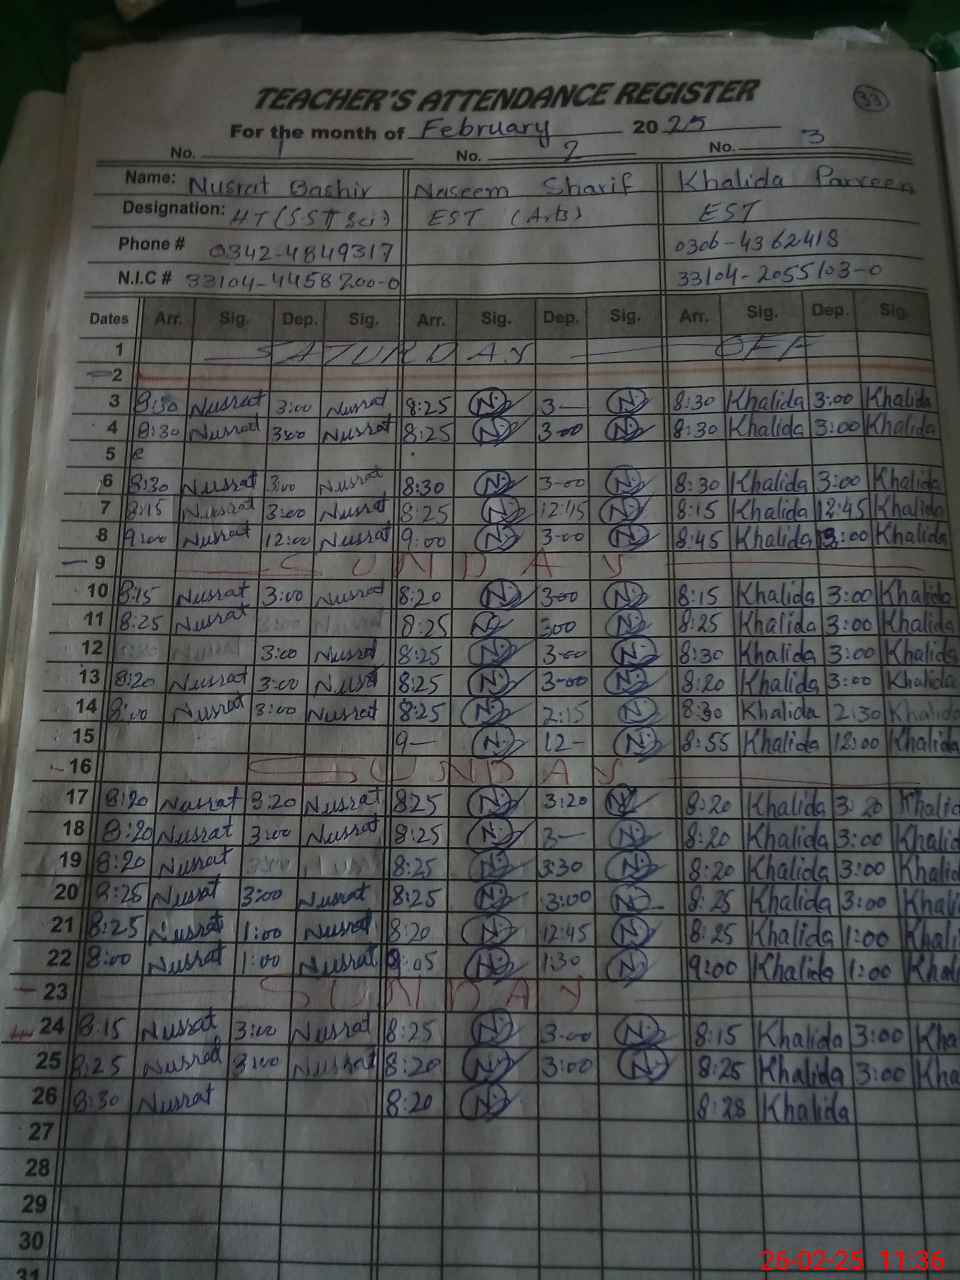 33
TEACHER'S ATTENDANCE REGISTER
For the month of February 2025
No. 1 No. 2 No. 3
Name: Nusrat Bashir Naseem Sharif Khalida Parveen
Designation: HT (SST Sci) EST (Arts) EST
Phone # 0342-4849317 0306-4362418
N.I.C # 33104-4458200-0 33104-2055103-0
Dates Arr. Sig. Dep. Sig. Arr. Sig. Dep. Sig. Arr. Sig. Dep. Sig.
1 SATURDAY OFF
2
3 8:30 Nusrat 3:00 Nusrat 8:25 N 3— N 8:30 Khalida 3:00 Khalida
4 8:30 Nusrat 3:00 Nusrat 8:25 N 3-00 N 8:30 Khalida 3:00 Khalida
5
6 8:30 Nusrat 3:00 Nusrat 8:30 N 3-00 N 8:30 Khalida 3:00 Khalida
7 8:15 Nusrat 3:00 Nusrat 8:25 N 12:45 N 8:15 Khalida 12:45 Khalida
8 9:00 Nusrat 12:00 Nusrat 9:00 N 3-00 N 8:45 Khalida 3:00 Khalida
9 SUNDAY
10 8:15 Nusrat 3:00 Nusrat 8:20 N 3-00 N 8:15 Khalida 3:00 Khalida
11 8:25 Nusrat 8:25 N 300 N 8:25 Khalida 3:00 Khalida
12 3:00 Nusrat 8:25 N 3-00 N 8:30 Khalida 3:00 Khalida
13 8:20 Nusrat 3:00 Nusrat 8:25 N 3-00 N 8:20 Khalida 3:00 Khalida
14 8:00 Nusrat 3:00 Nusrat 8:25 N 2:15 N 8:30 Khalida 2:30 Khalida
15 9— N 12- N 8:55 Khalida 12:00 Khalida
16 SUNDAY
17 8:20 Nusrat 3:20 Nusrat 825 N 3:20 N 8:20 Khalida 3:20 Khalid
18 8:20 Nusrat 3:00 Nusrat 8:25 N 3— N 8:20 Khalida 3:00 Khalid
19 8:20 Nusrat 8:25 N 3:30 N 8:20 Khalida 3:00 Khalid
20 8:25 Nusrat 3:00 Nusrat 8:25 N 3:00 N 8:25 Khalida 3:00 Khali
21 8:25 Nusrat 1:00 Nusrat 8:20 N 12:45 N 8:25 Khalida 1:00 Khali
22 8:00 Nusrat 1:00 Nusrat :05 N 1:30 N 9:00 Khalida 1:00 Khal
23 SUNDAY
24 8:15 Nusrat 3:00 Nusrat 8:25 N 3-00 N 8:15 Khalida 3:00 Kha
25 8:25 Nusrat 3:00 Nusrat 8:20 N 3:00 N 8:25 Khalida 3:00 Kha
26 8:30 Nusrat 8:20 N 8:28 Khalida
27
28
29
30
31
26-02-25 11:36